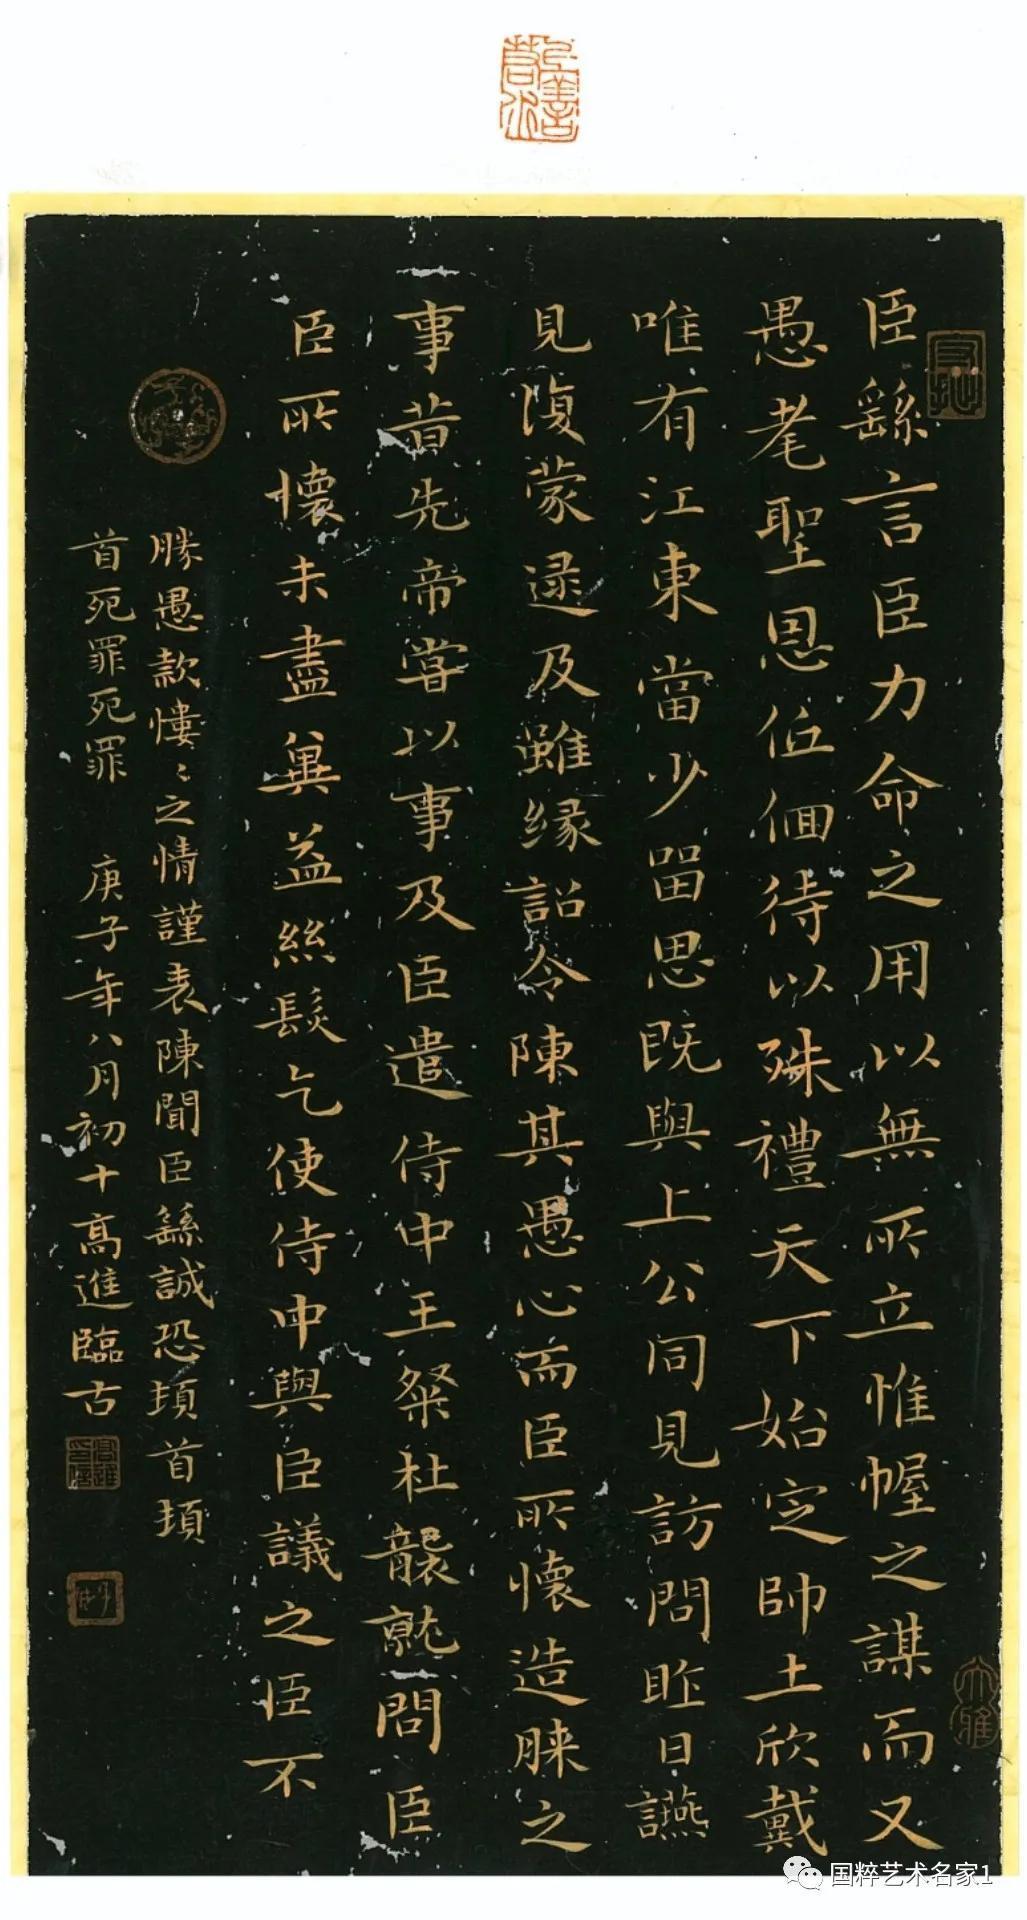 臣繇言臣力命之用以無所立惟幄之謀而又
愚耄聖恩低佪待以殊禮天下始定帥土欣戴
唯有江東當少留思既與上公同見訪問昨日讌
見復蒙逮及雖緣詔令陳其愚心而臣所懷造膝之
事昔先帝嘗以事及臣遣侍中王粲杜襲就問臣
臣所懷未盡冀益絲髮乞使侍中與臣議之臣不
勝愚款慺〻之情謹表陳聞臣繇誠恐頓首頓
首死罪死罪 庚子年八月初十高進臨古
国粹艺术名家1